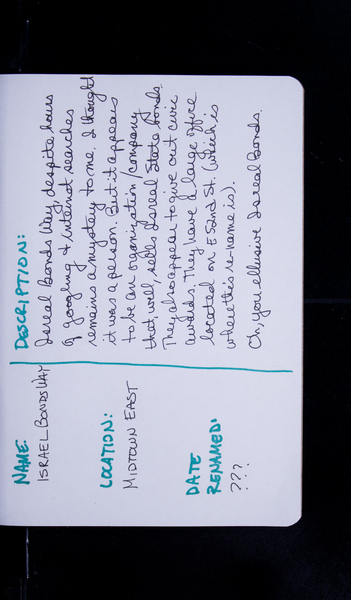 NAME:
ISRAEL BONDS WAY
LOCATION:
MIDTOWN EAST
DATE
RENAMED:
???
DESCRIPTION:
Isreal Bonds Way, despite hours
of googling + internet searches
remains a mystery to me. I thought
it was a person. But it appears
to be an organization/company
that, well, sells Isreal State bonds.
They also appear to give out civic
awards. They have a large office
located on E 52nd St. (which is
where this re-name is).
Oh, you ellusive Isreal Bonds.